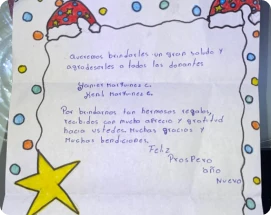 Queremos brindarles un gran saludo y
agradeserles a todos los donantes
Yanior Martunez C.
Henl Martunez C.
Por brindarnos tan hermosos regalos,
recibidos con mucho aprecio y gratitud
hacia ustedes. Muchas gracias y
Muchas bendiciones.
Feliz
Prospero
año
Nuevo